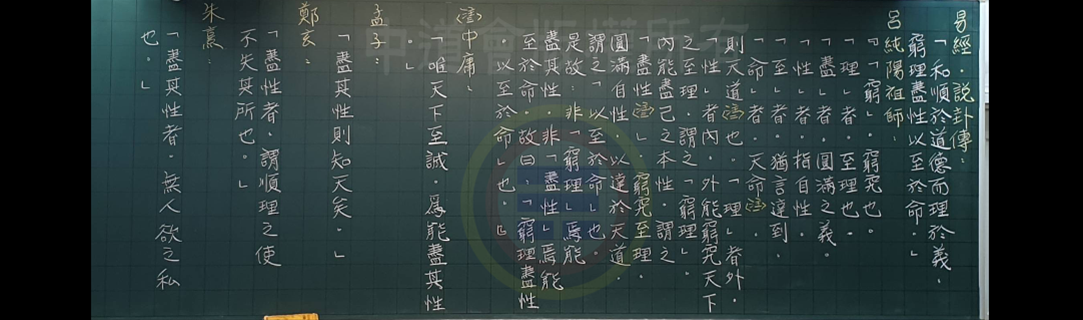 易經．說卦傳：
「和順於道德而理於義，
窮理盡性以至於命。」
呂純陽祖師：
『「窮」，窮究也。
「理」者，至理也。
「盡」者，圓滿之義。
「性」者，指自性。
「至」者，猶言達到。
「命」者，天命。
則天道也。「理」者外，
「性」者內，外能窮究天下
之至理，謂之「窮理」。
內能盡己之本性，謂之
「盡性」。窮究至理，
圓滿自性，以達於天道，
謂之「以至於命」也。
是故：非「窮理」焉能
盡其性，非「盡性」焉能
至於命，故曰：「窮理盡性
以至於命」也。』
中庸：
「唯天下至誠，為能盡其性
。」
孟子：
「盡其性則知天矣。」
鄭玄：
「盡性者，謂順理之使
不失其所也。」
朱熹：
「盡其性者，無人欲之私
也。」